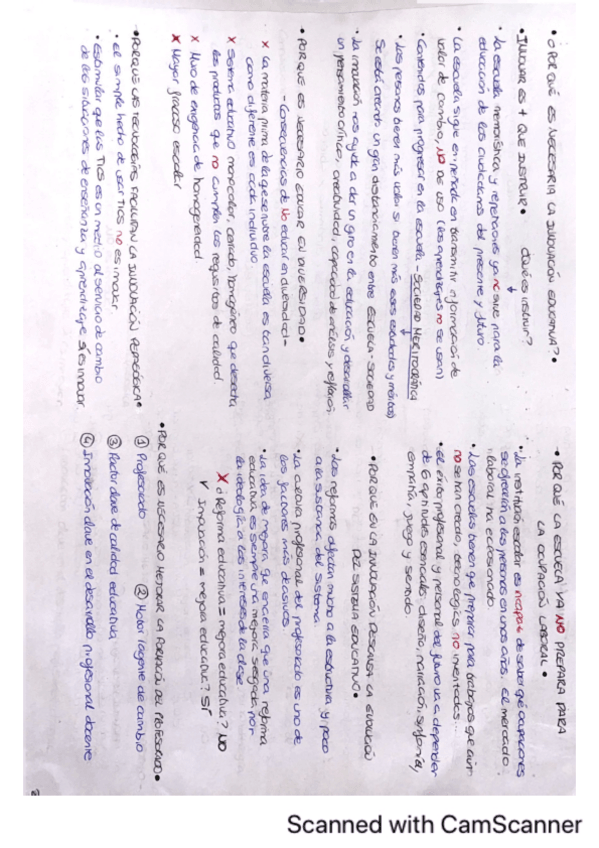 • ¿POR QUÉ ES NECESARIA LA INNOVACIÓN EDUCATIVA? •
• INNOVAR ES + QUE INSTRUIR • ¿Qué es instruir?
• La escuela memorística y repeticiones ya no sirve para la
educación de los ciudadanos del presente y futuro.
• La escuela sigue en pensada en transmitir información de
valor de cambio, NO DE USO (los aprendizajes no se usan)
• Contenidos para progresar en la escuela - SOCIEDAD MERITOCRÁTICA
• Las personas tienen más valor si tienen más
Se está creando un gran distanciamiento entre ESCUELA - SOCIEDAD
• La innovación nos ayuda a dar un giro en la educación y desarrollar
un pensamiento crítico, creatividad, capacidad de análisis y reflexión.
• POR QUÉ ES NECESARIO EDUCAR EN DIVERSIDAD •
- Consecuencias de NO educar en diversidad -
X La materia prima de la que se nutre la escuela es tan diversa
como diferente es cada individuo.
X Sistema educativo monocolor, cerrado, homogéneo que desecha
los productos que no cumplen los requisitos de calidad
X Nivel de exigencia de homogeneidad
X Mayor fracaso escolar
• POR QUÉ LAS TECNOLOGÍAS FACILITAN LA INNOVACIÓN PEDAGÓGICA •
• El simple hecho de usar TICs no es innovar
• Estimular que las TICs es un medio al servicio de cambio
de las situaciones de enseñanza y aprendizaje SÍ es innovar.
• POR QUÉ LA ESCUELA YA NO PREPARA PARA
LA OCUPACIÓN LABORAL •
• La institución escolar es incapaz de saber qué ocupaciones
se ofrecerán a las personas en unos años. El mercado
laboral ha evolucionado.
• Las escuelas tienen que preparar para trabajos que aún
no se han creado, tecnologías no inventadas...
• El éxito profesional y personal del futuro va a depender
de 6 aptitudes esenciales: diseño, narración, sinfonía,
empatía, juego y sentido.
• POR QUÉ EN LA INNOVACIÓN DESCANSA LA EVOLUCIÓN
DEL SISTEMA EDUCATIVO •
• Las reformas afectan mucho a la estructura y poco
a la sustancia del sistema.
• La carrera profesional del profesorado es uno de
los factores más decisivos
• La idea de mejora que encierra que una reforma
educativa es siempre una mejora, sesgada por
la ideología a los intereses de la clase.
X ¿Reforma educativa = mejora educativa? NO
V Innovación = mejora educativa? SÍ
• POR QUÉ ES NECESARIO MEJORAR LA FORMACIÓN DEL PROFESORADO •
① Profesorado ② Motor / agente de cambio
③ Factor clave de calidad educativa.
④ Innovación clave en el desarrollo profesional docente
Scanned with CamScanner